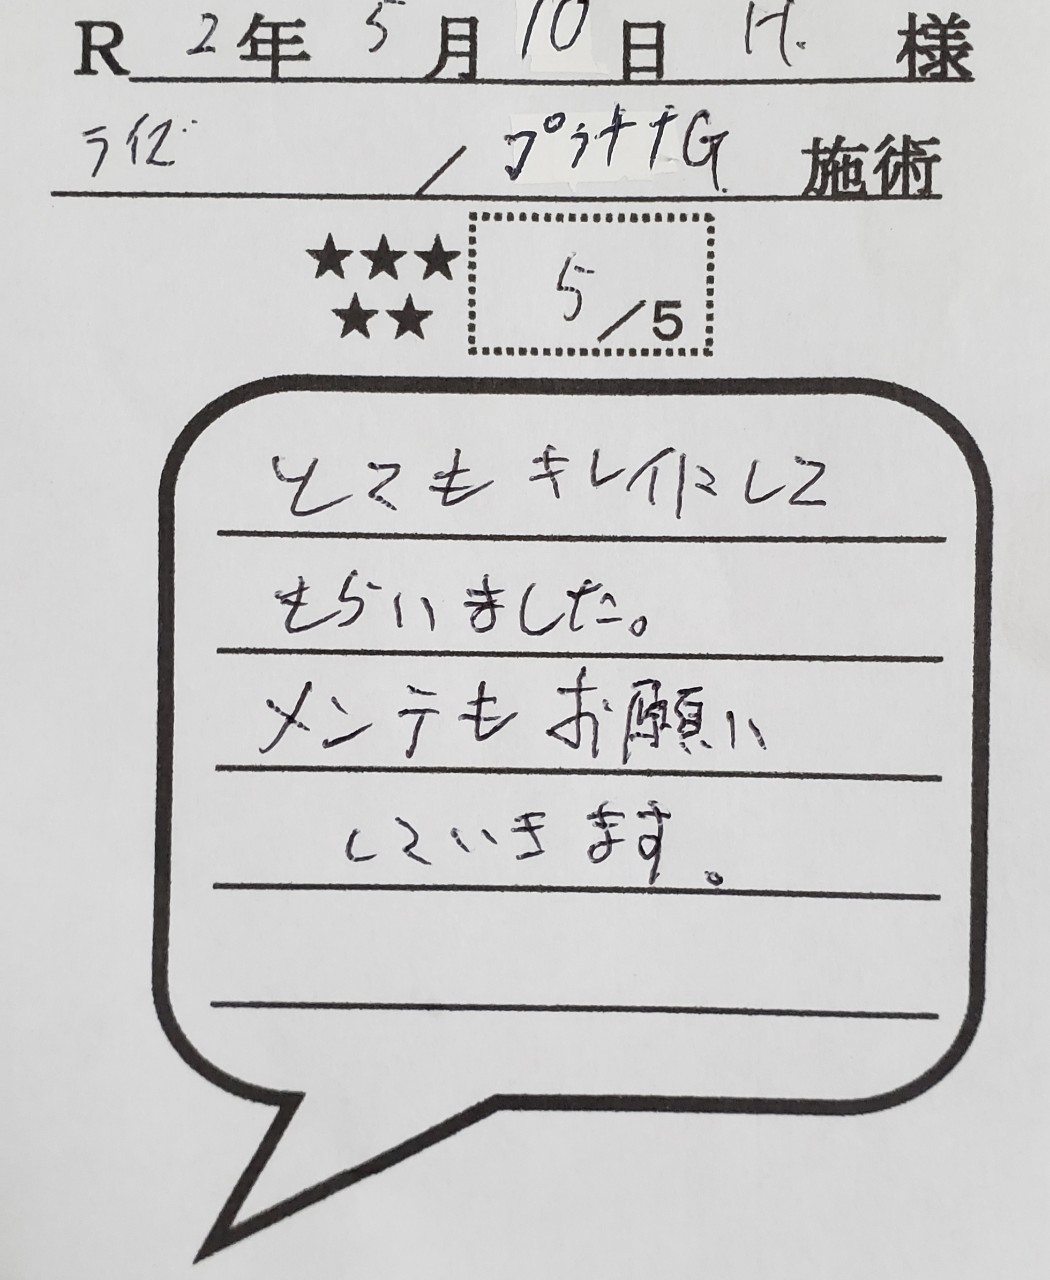 R 2年 5月 10日 H. 様
ライズ / プラチナG 施術
★★★
★★
5/5
とてもキレイにして
もらいました。
メンテもお願い
していきます。